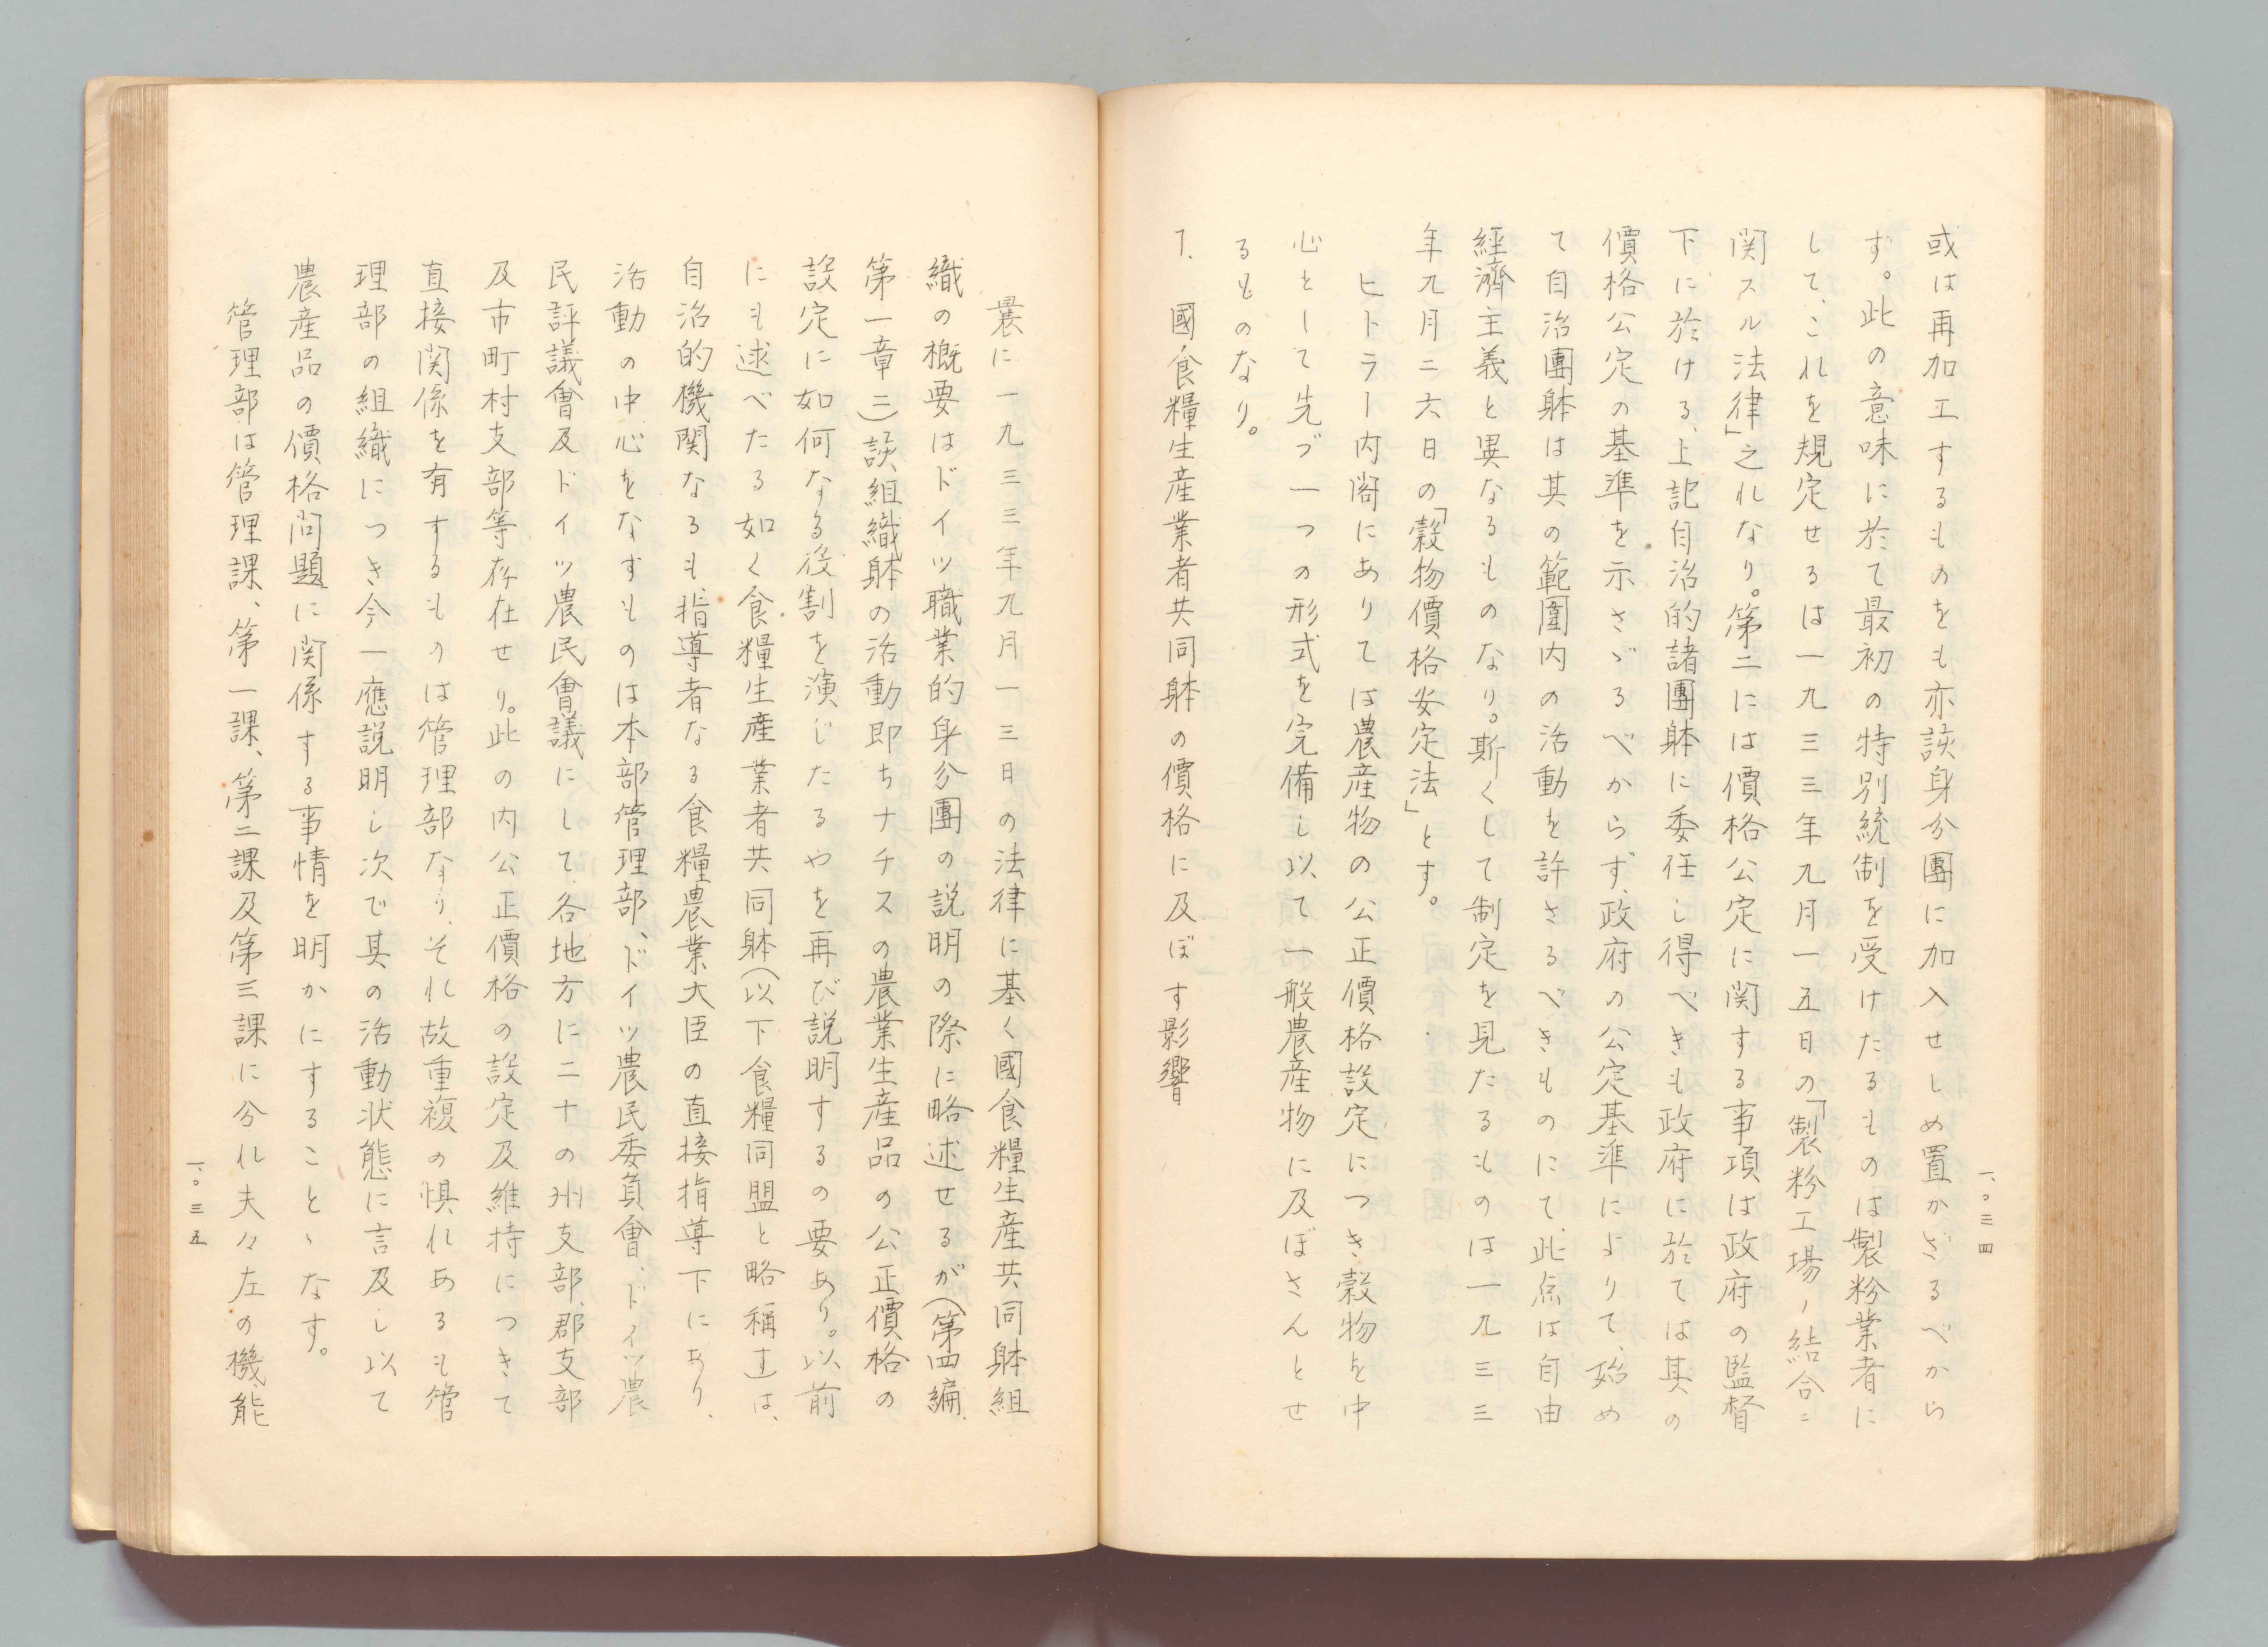 一、〇三四
或は再加工するものをも亦該身分團に加入せしめ置かざるべから
ず。此の意味に於て最初の特別統制を受けたるものは製粉業者に
して、これを規定せるは一九三三年九月一五日の「製粉工場ノ結合ニ
関スル法律」之れなり。第二には價格公定に関する事項は政府の監督
下に於ける、上記自治的諸團躰に委任し得べきも政府に於ては其の
價格公定の基準を示さゞるべからず、政府の公定基準によりて、始め
て自治團躰は其の範圍内の活動を許さるべきものにて、此点は自由
經濟主義と異なるものなり。斯くして制定を見たるものは一九三三
年九月二六日の「穀物價格安定法」とす。
ヒトラー内閣にありては農産物の公正價格設定につき穀物を中
心として先づ一つの形式を完備し以て一般農産物に及ぼさんとせ
るものなり。
7. 國食糧生産業者共同躰の價格に及ぼす影響
曩に一九三三年九月一三日の法律に基く國食糧生産共同躰組
織の概要はドイツ職業的身分團の説明の際に略述せるが（第四編、
第一章二）該組織躰の活動即ちナチスの農業生産品の公正價格の
設定に如何なる役割を演じたるやを再び説明するの要あり。以前
にも述べたる如く食糧生産業者共同躰（以下食糧同盟と略稱す）は、
自治的機関なるも、指導者なる食糧農業大臣の直接指導下にあり、
活動の中心をなすものは本部管理部、ドイツ農民委員會、ドイツ農
民評議會及ドイツ農民會議にして、各地方に二十の州支部、郡支部
及市町村支部等存在せり。此の内公正價格の設定及維持につきて
直接関係を有するものは管理部なり、それ故重複の惧れあるも管
理部の組織につき今一應説明し次で其の活動状態に言及し以て
農産品の價格問題に関係する事情を明かにすることゝなす。
管理部は管理課、第一課、第二課及第三課に分れ夫々左の機能
一、〇三五